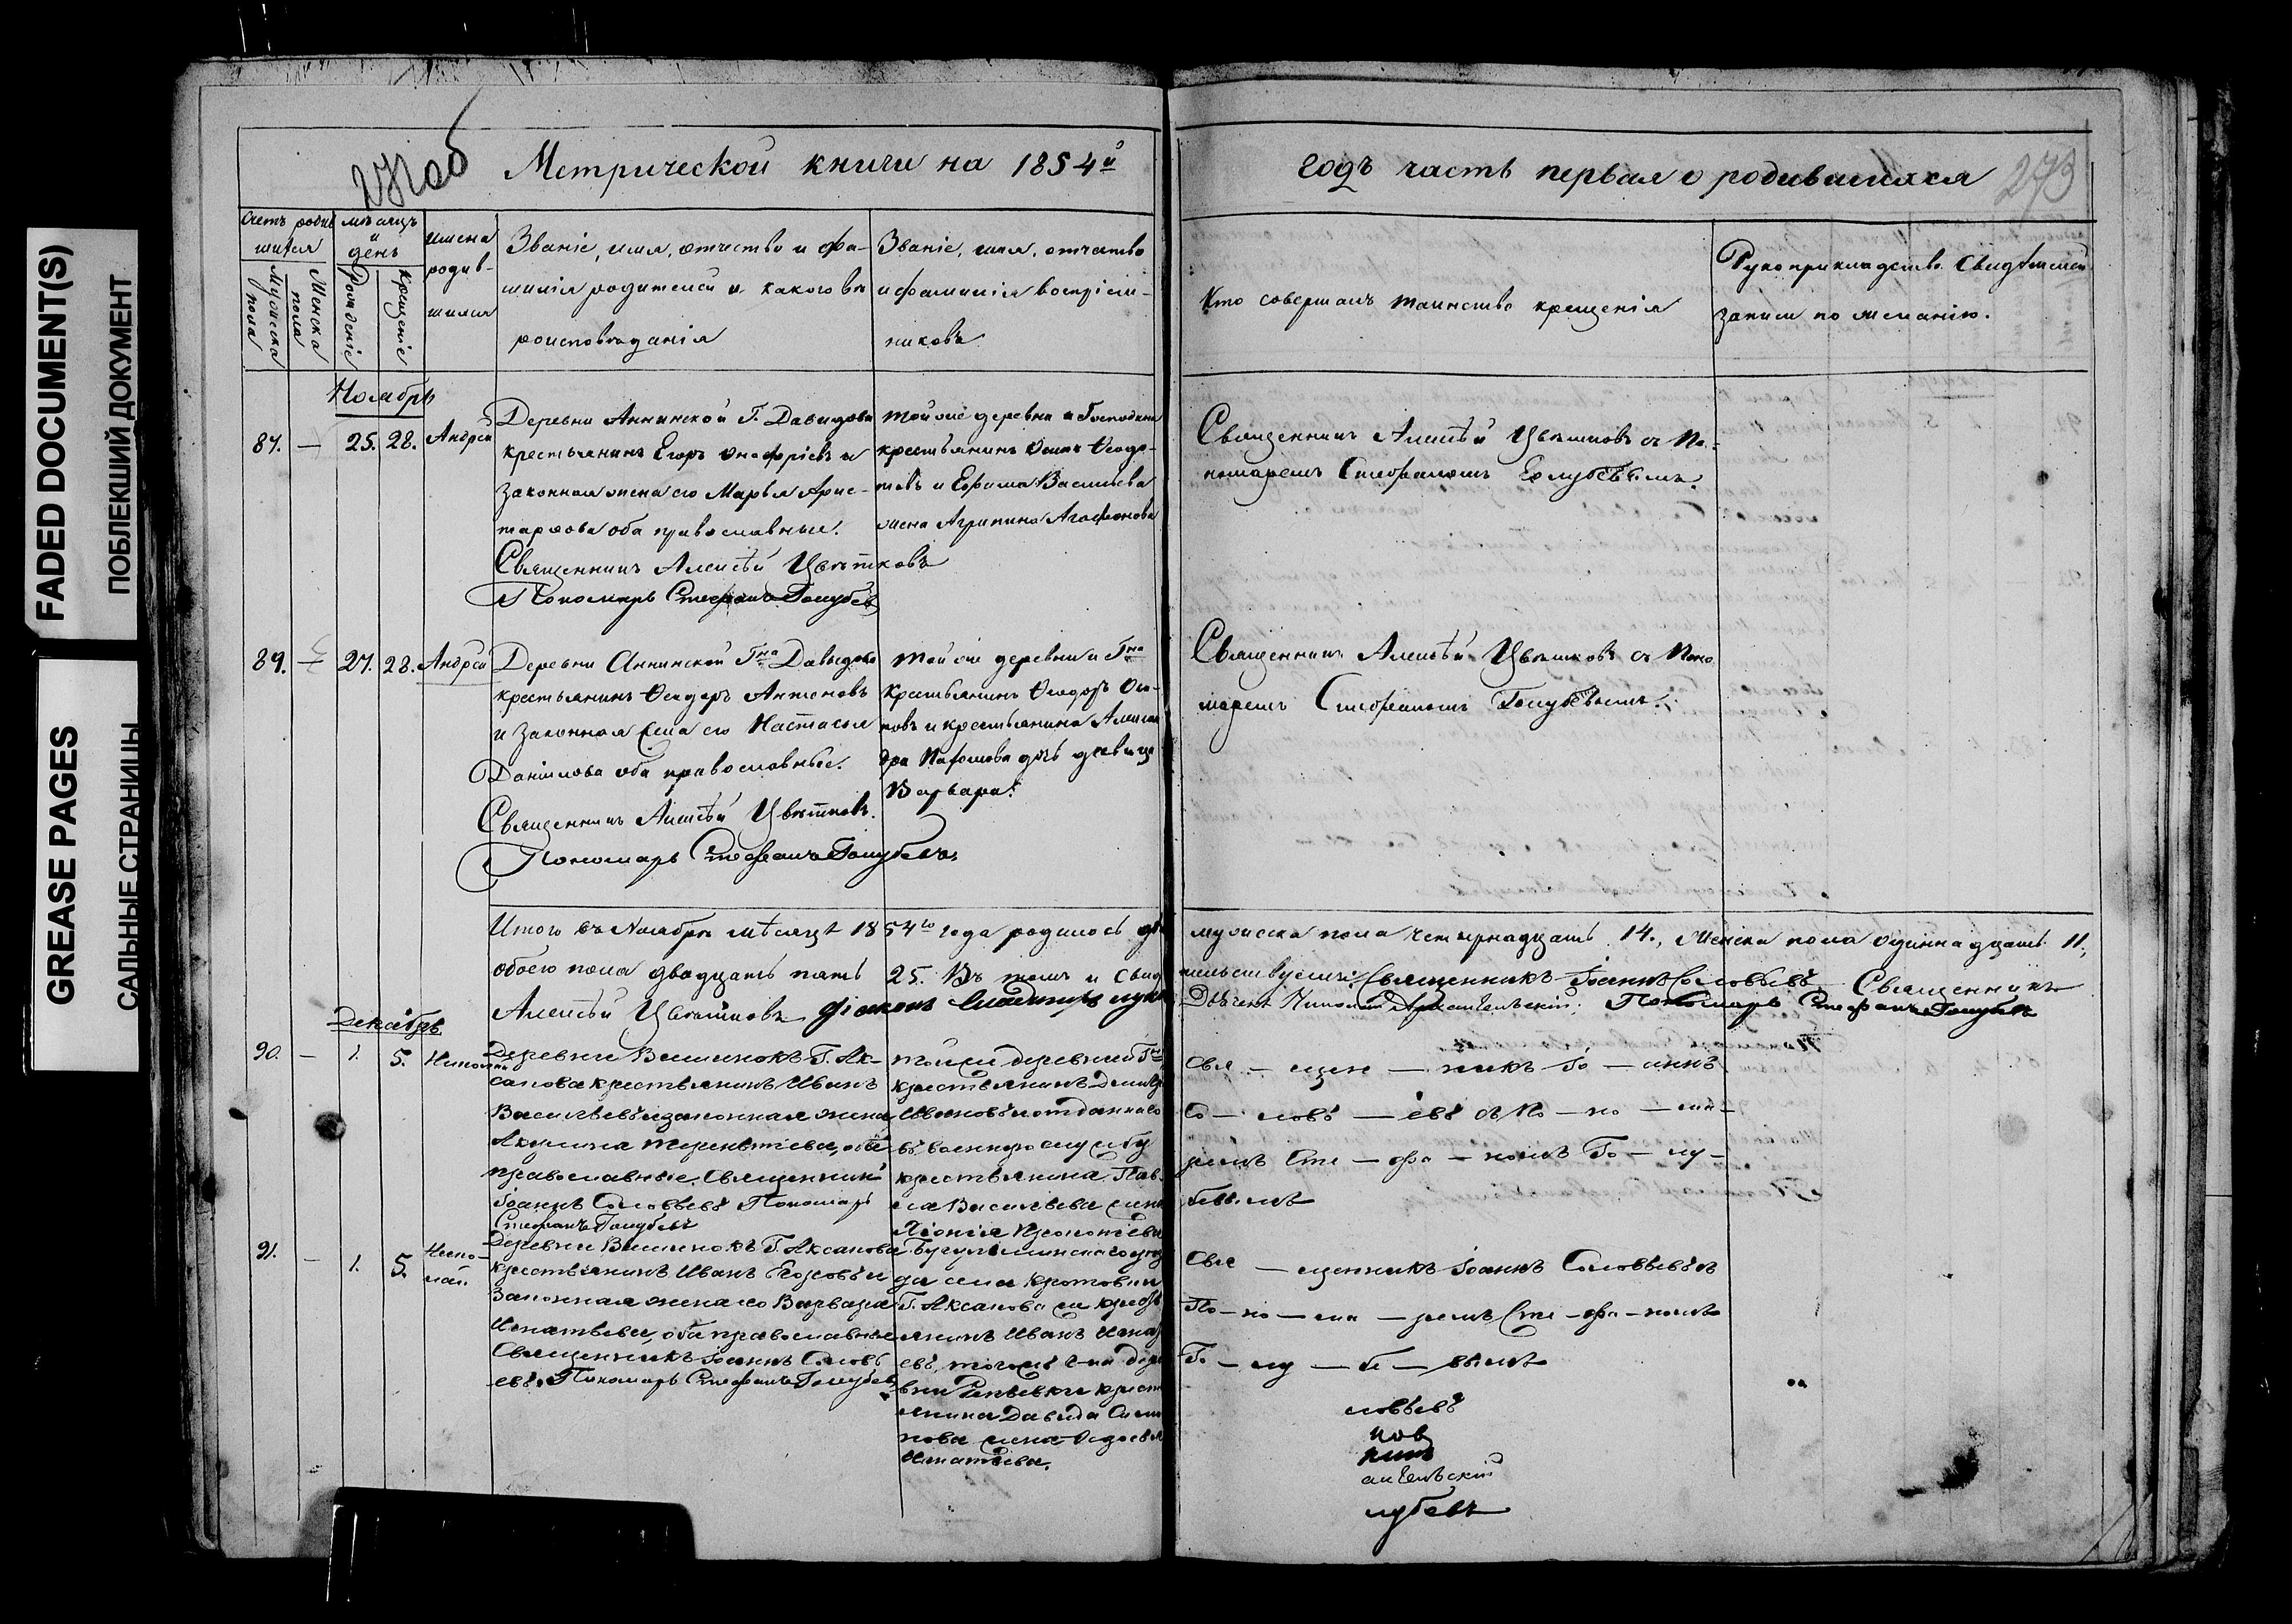 FADED DOCUMENT(S)
ПОБЛЕКШИЙ ДОКУМЕНТ
GREASE PAGES
САЛЬНЫЕ СТРАНИЦЫ
Метрической книги на 1854й
годъ часть первая о родившихся 273
Счетъ родив
шихся
Мужеска пола
Женска пола
мѣсяцъ
и
день
Рожденіе
Крещеніе
Имена
родив-
шихся
Званіе, имя, отчество и фа-
милія родителей и какого вѣ
роисповѣданія
Званіе, имя, отчество
и фамилія воспріем-
никовъ
Кто совершалъ таинство крещенія
Рукоприкладство свидѣтелей
записи по желанію.
Ноябрь
87. — 25. 28. Андрей
Деревни Аннинской Г. Давыдова
крестьянинъ Егоръ Онофріевъ и
законная жена его Марья Арис-
тархова оба православные.
Священникъ Алексѣй Цвѣтковъ
Пономарь Стефанъ Голубев
той же деревни и Господина
крестьянинъ Ѳеодо-
товъ и Ефима Васильева
жена Агрипина Агафонова
Священникъ Алексѣй Цвѣтковъ съ По-
номаремъ Стефаномъ Голубевымъ.
89. — 27. 28. Андрей
Деревни Аннинской Гна Давыдова
крестьянинъ Ѳеодоръ Антоновъ
и законная жена его Настасья
Данилова оба православные.
Священникъ Алексѣй Цвѣтковъ.
Пономарь Стефанъ Голубевъ
той же деревни и Гна
крестьянинъ Ѳеодоръ Оси-
повъ и крестьянина Алексан
дра дочь девица
Варвара.
Священникъ Алексѣй Цвѣтковъ съ Поно
маремъ Стефаномъ Голубевымъ.
Итого въ Ноябрѣ мѣсяцѣ 1854го года родилось
мужеска пола четырнадцать 14., Женска пола одиннадцать 11,
обоего пола двадцать пять 25. Въ томъ и свид
тельствуемъ: Священникъ Іоаннъ Соловьевъ Священникъ
Алексѣй Цвѣтковъ діаконъ Владимиръ
Николай Архангельскій. Пономарь Стефанъ Голубевъ
Декабрь
90. — 1. 5. Николай
Деревни Г. Ак-
сакова крестьянинъ Иванъ
Васильевъ и законная жена
Акулина Терентьева, оба
православные. Священникъ
Іоаннъ Соловьевъ Пономарь
Стефанъ Голубевъ
той же деревни Гна
крестьянинъ Дмитр
Ивановъ и отданнаго
въ военную службу
крестьянина Пав-
ла Васильева жена
Свя — щен — никъ Іо — аннъ
Со — ловь — евъ съ По — но — ма —
ремъ Сте — фа — номъ Го — лу —
бевымъ
91. — 1. 5. Нико-
лай.
Деревни Г. Аксакова
крестьянинъ Иванъ Егоровъ и
законная жена его Варвара
Игнатьева, оба православные
Священникъ Іоаннъ Соловь
евъ. Пономарь Стефанъ Голубев
Бугурусланскаго уѣз
да села Кротовки
Г. Аксакова же кресть
янинъ Иванъ Игнат
евъ, деревни крест
янина Давида
нова жена Ѳедосья
Игнатьева.
Свя — щенникъ Іоаннъ Соловьевъ съ
По — но — ма — ремъ Сте — фа — номъ
Го — лу — бе — вымъ
ловьевъ
ков
ангельскій
лубевъ